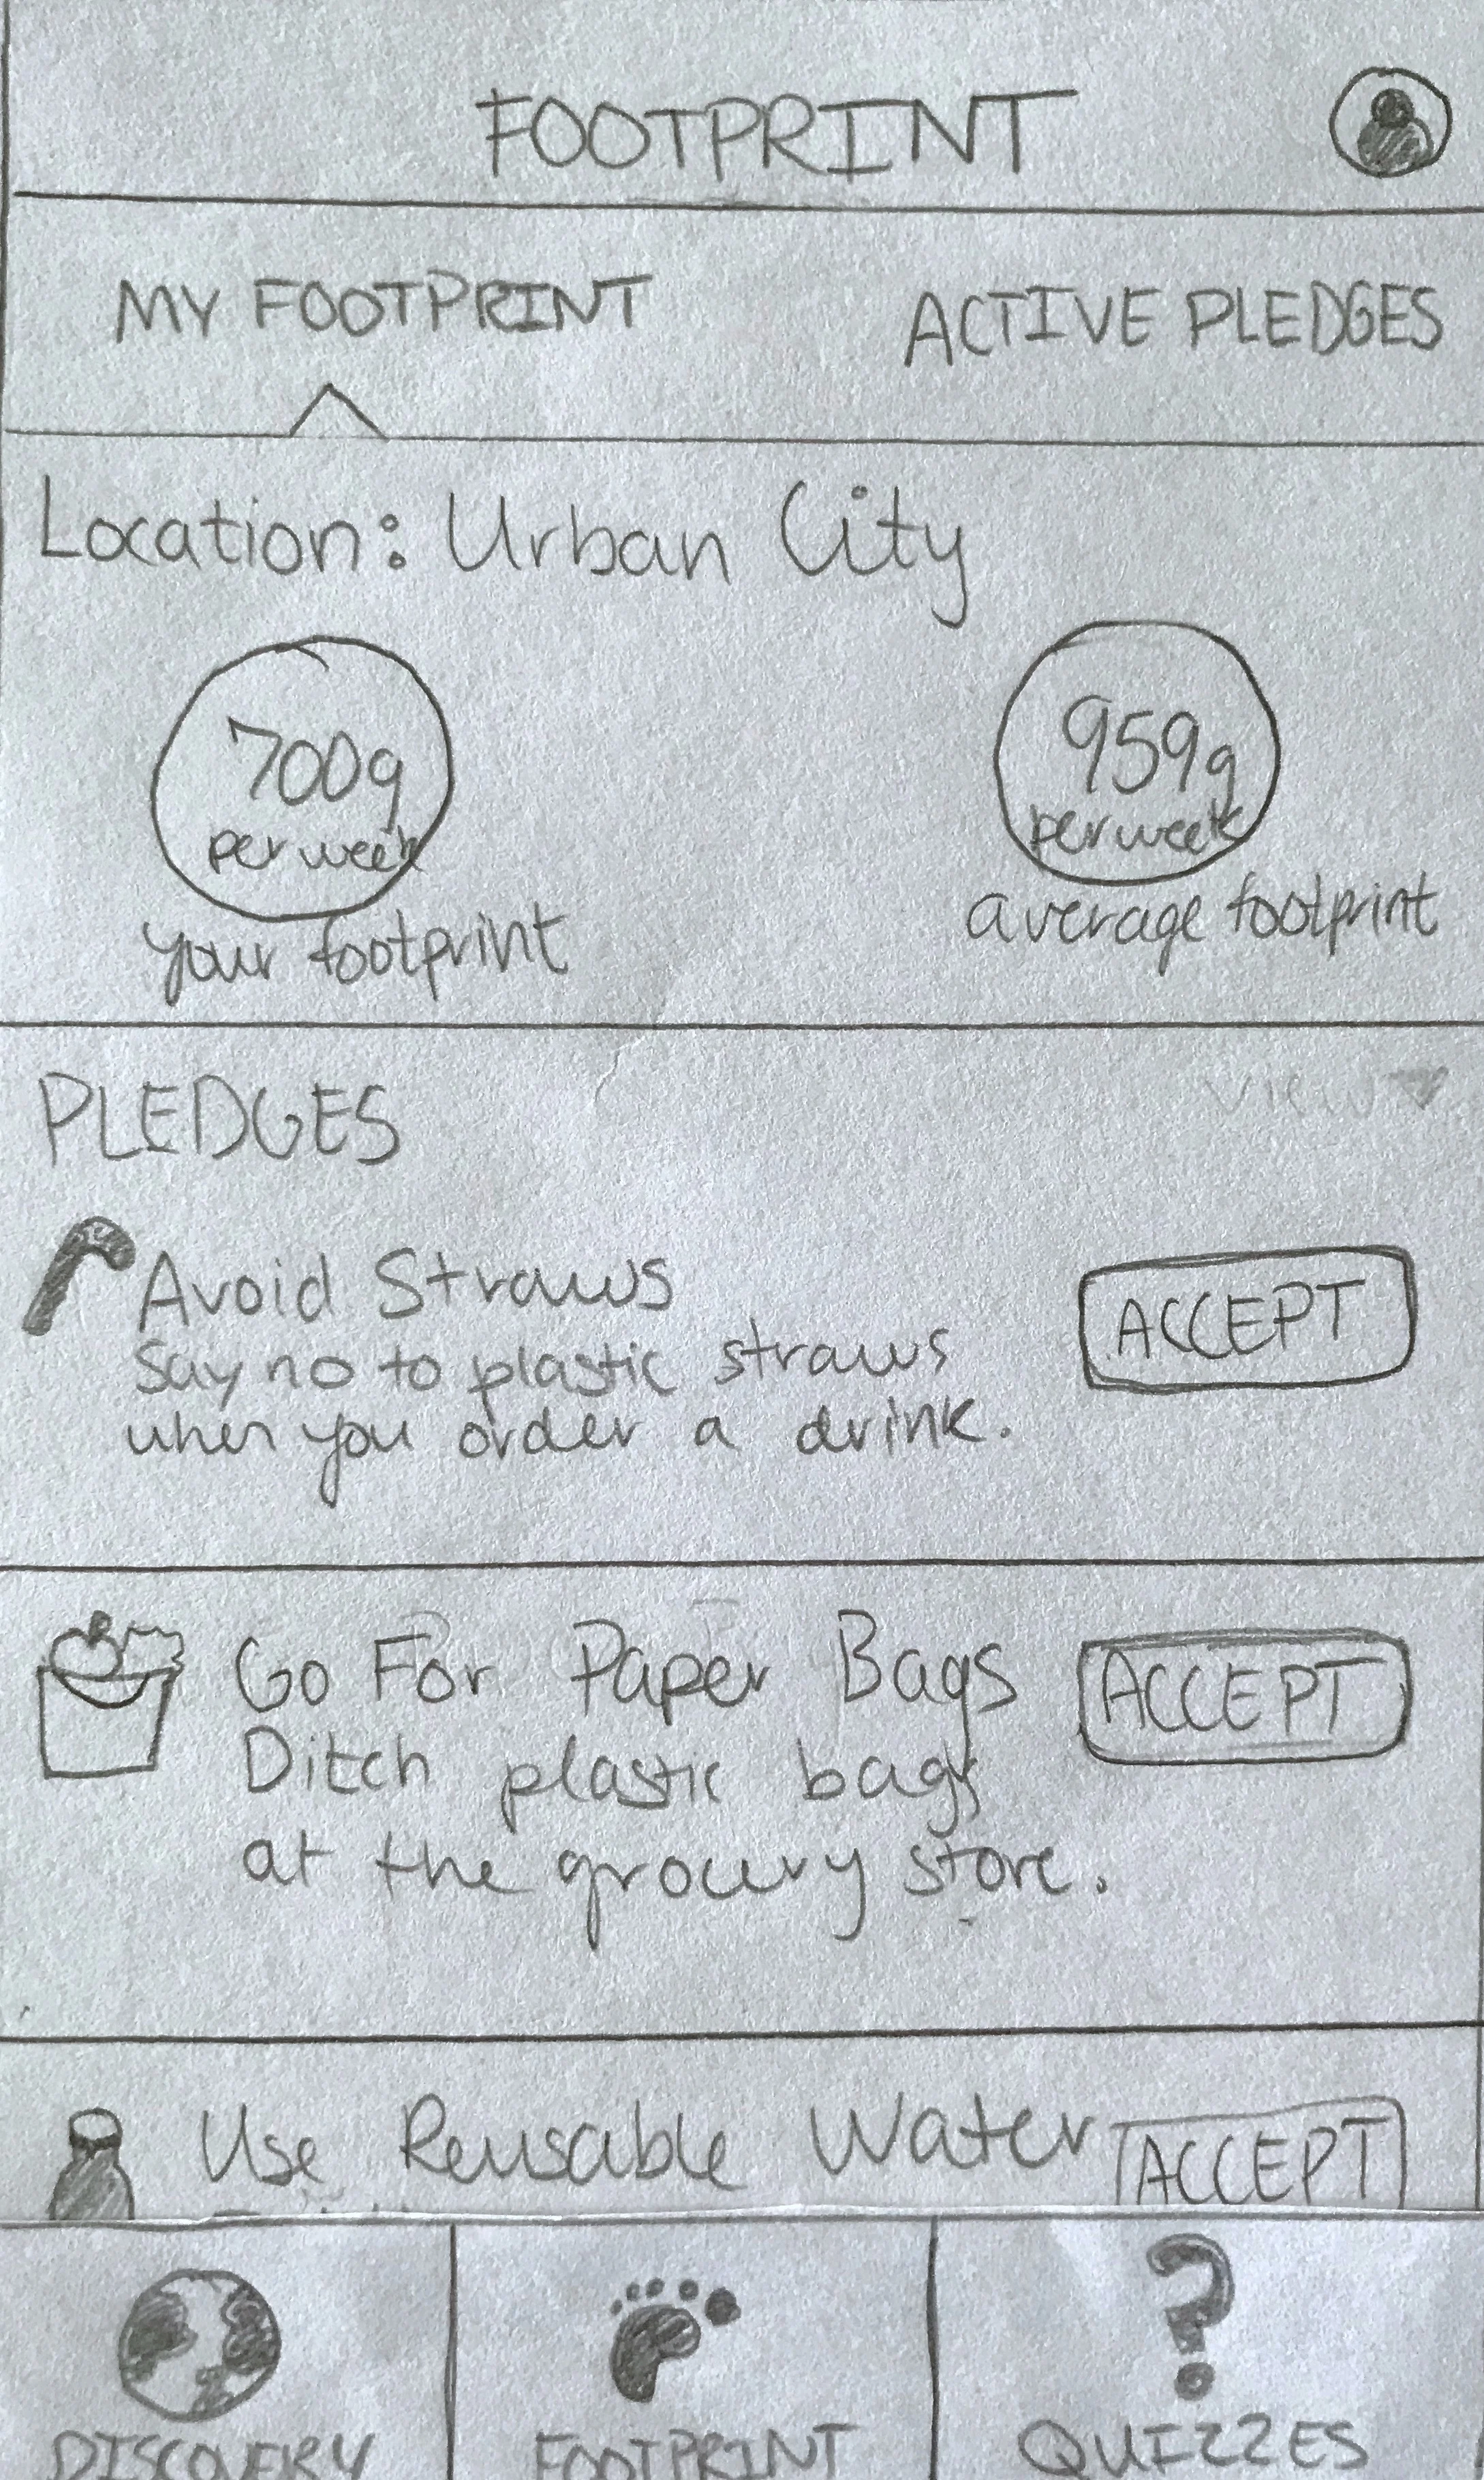 FOOTPRINT
MY FOOTPRINT ACTIVE PLEDGES
Location: Urban City
700g per week
your footprint
959g per week
average footprint
PLEDGES view
Avoid Straws
Say no to plastic straws
when you order a drink.
ACCEPT
Go For Paper Bags
Ditch plastic bags
at the grocery store.
ACCEPT
Use Reusable Water
ACCEPT
DISCOVERY FOOTPRINT QUIZZES